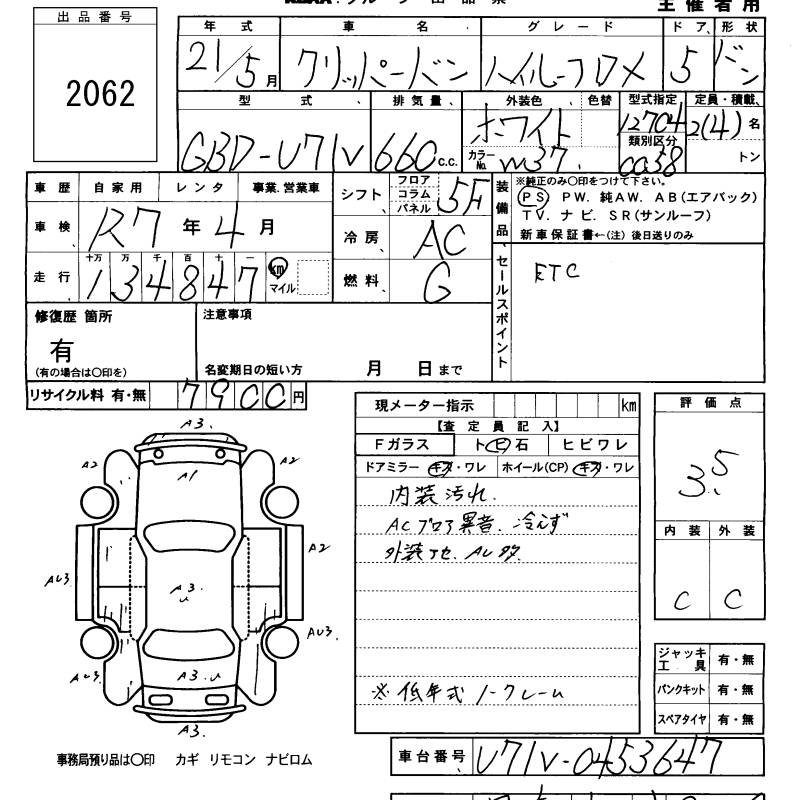 出品番号
2062
主催者用
年式 車名 グレード ドア、形状
21/5月 クリッパーバン ハイルーフDX 5 バン
型式、 排気量、 外装色、 色替 型式指定 定員・積載、
GBD-U71V 660 c.c. ホワイト 12704 2(4)名
カラーNo. W37. 類別区分 0058 トン
車歴 自家用 レンタ 事業.営業車
シフト フロア コラム パネル 5F
装備品、 ※純正のみ○印をつけて下さい。
PS PW. 純AW. AB(エアバック)
TV. ナビ. SR(サンルーフ)
新車保証書←(注)後日送りのみ
車検、 R7年4月
冷房 AC
走行、 十万 万 千 百 十 一
134847 km マイル
燃料、 G
セールスポイント
ETC
修復歴 箇所
有
(有の場合は○印を)
注意事項
名変期日の短い方 月 日まで
リサイクル料 有・無 7900円
現メーター指示 km
【査定員記入】
Fガラス ト ビ 石 ヒビワレ
ドアミラー キズ・ワレ ホイール(CP) キズ・ワレ
内装汚れ.
ACブロア異音. 冷えず
※低年式ノークレーム
評価点
3.5
内装 外装
C C
ジャッキ工具 有・無
パンクキット 有・無
スペアタイヤ 有・無
A3.
A2 A2
A1
A2
AU3
A3.u
AU3.
AU3
A3.u
A3.
事務局預り品は○印 カギ リモコン ナビロム
車台番号 U71V-0453647